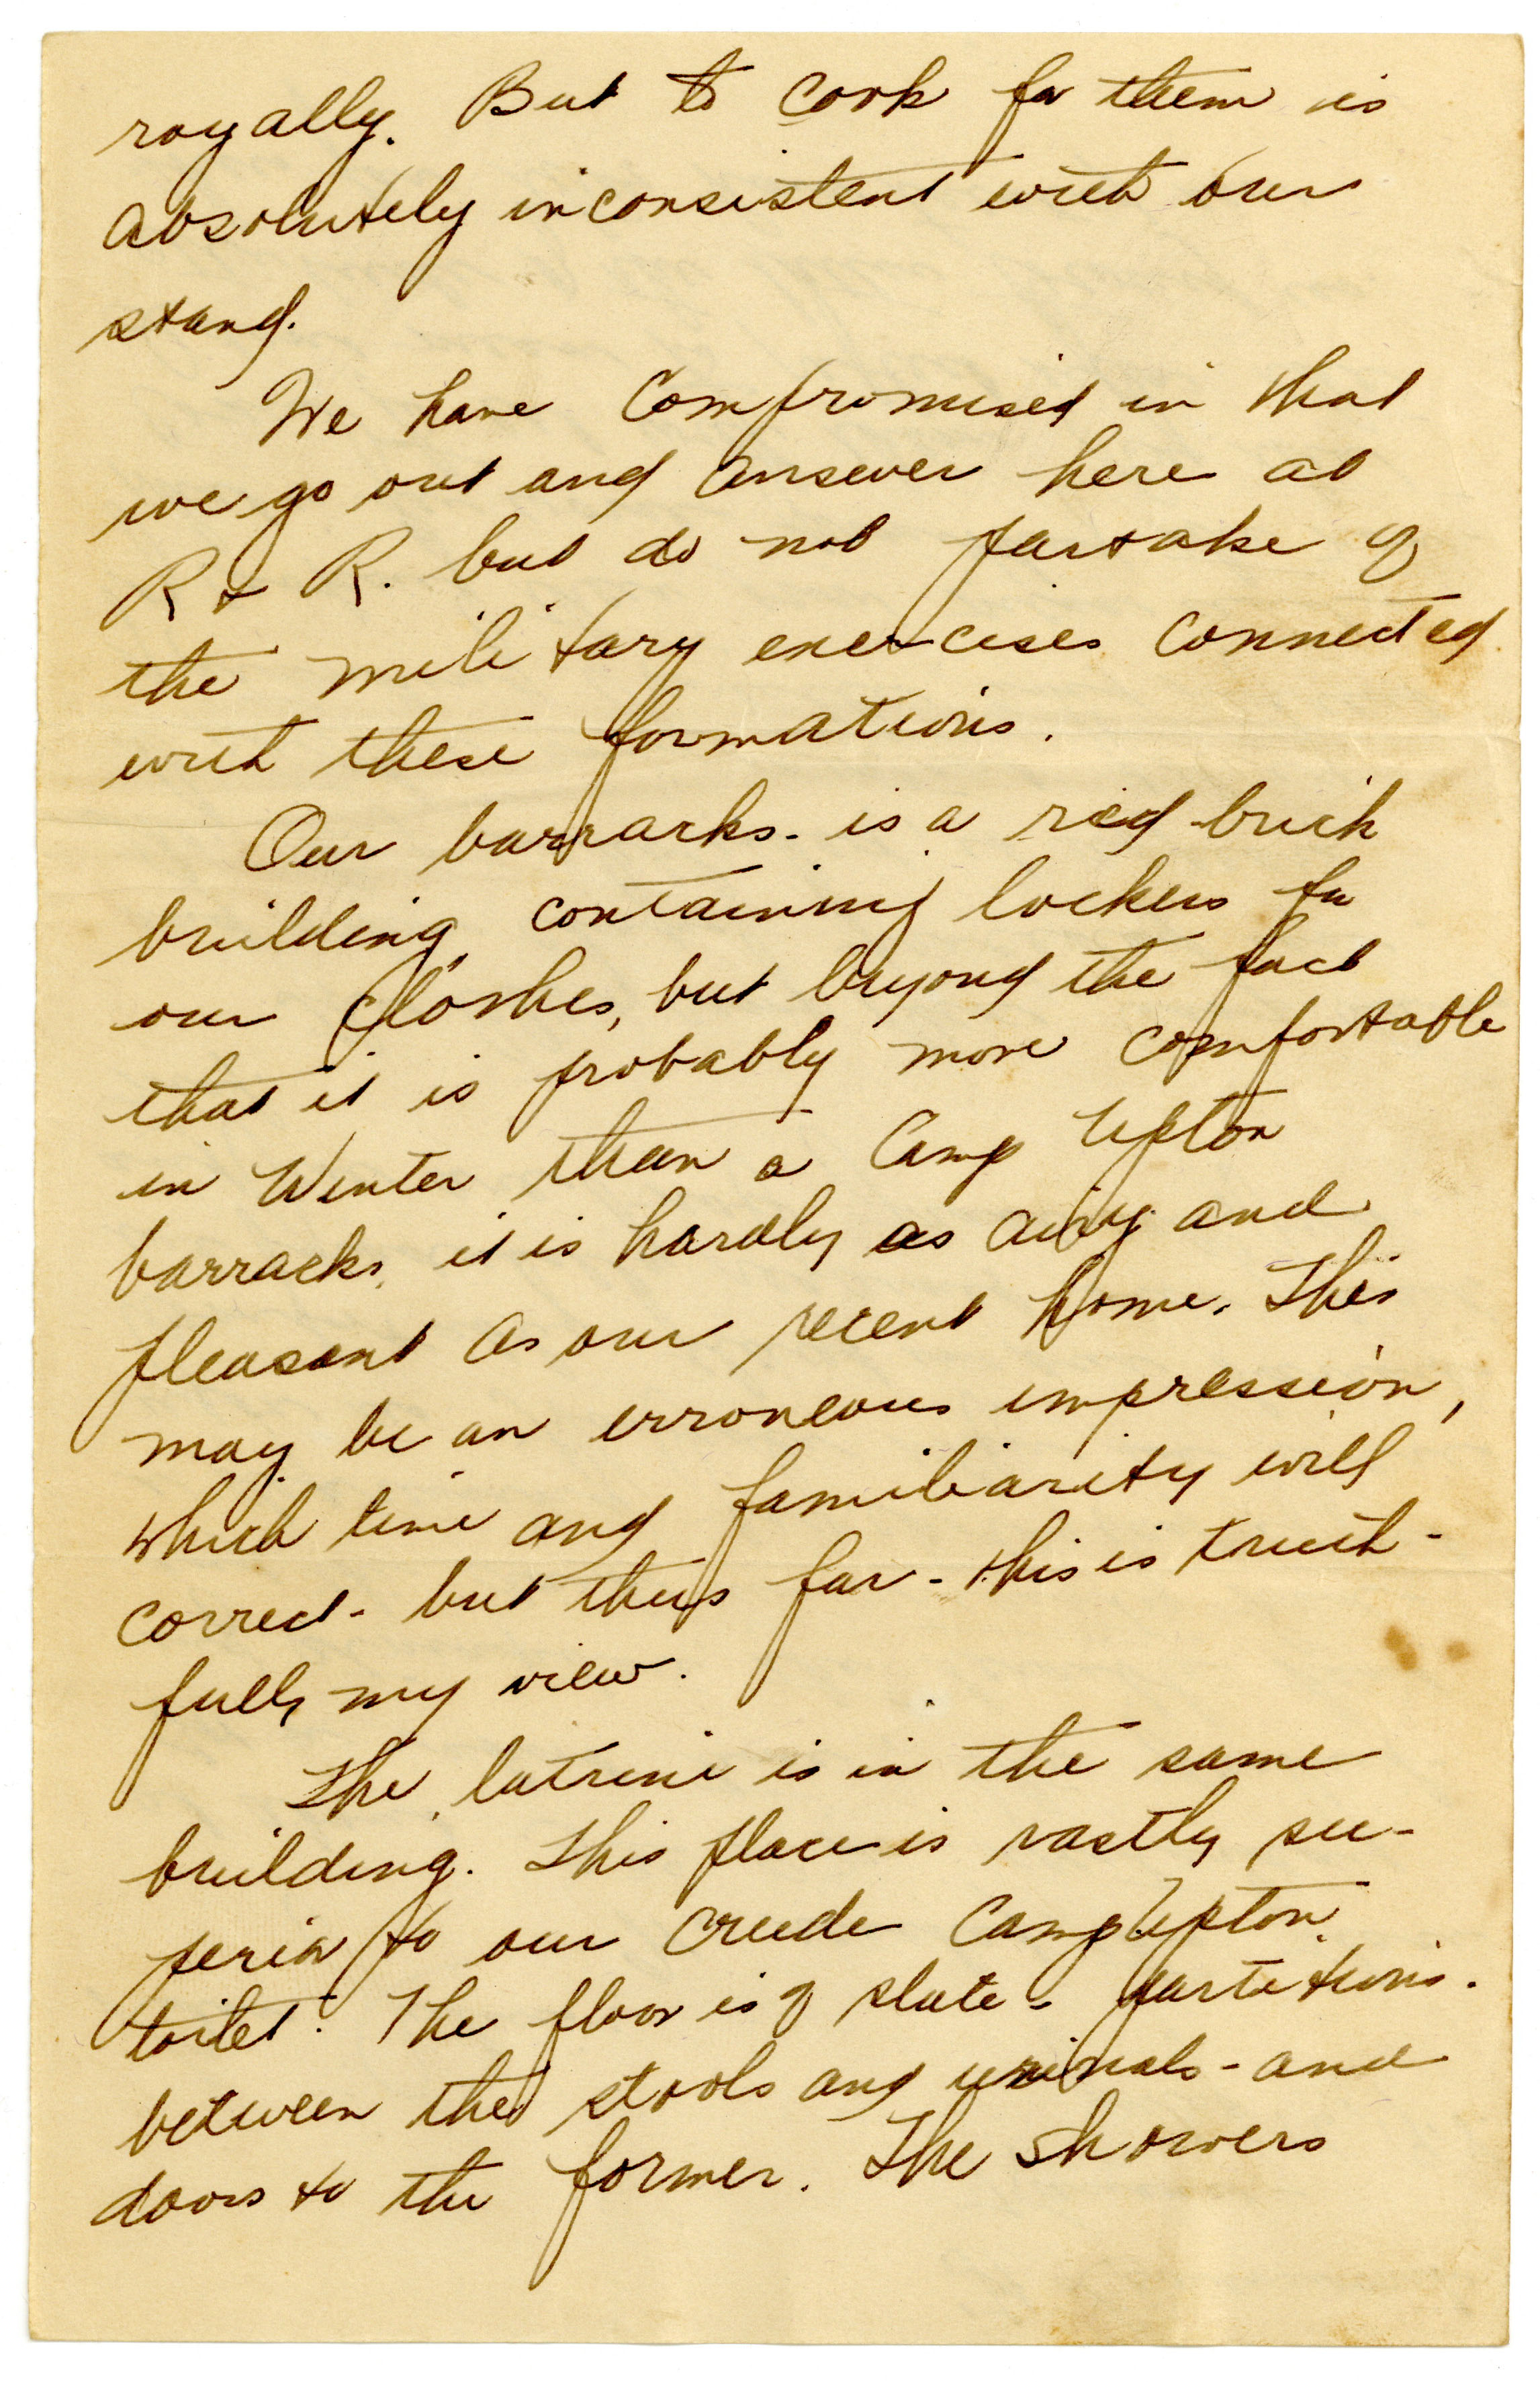 royally. But to cook for them is
absolutely inconsistent with our
stand.
We have compromised in that
we go out and answer here at
R & R. but do not partake of
the military exercises connected
with these formations.
Our barracks - is a red brick
building, containing lockers for
our clothes, but beyond the fact
that it is probably more comfortable
in Winter than a Camp Upton
barracks, it is hardly as airy and
pleasant as our recent home. This
may be an erroneous impression,
which time and familiarity will
correct - but thus far - this is truth-
fully my view.
The latrine is in the same
building. This place is vastly su-
perior to our crude Camp Upton
toilet. The floor is of slate - partitions
between the stools and urinals - and
doors to the former. The showers